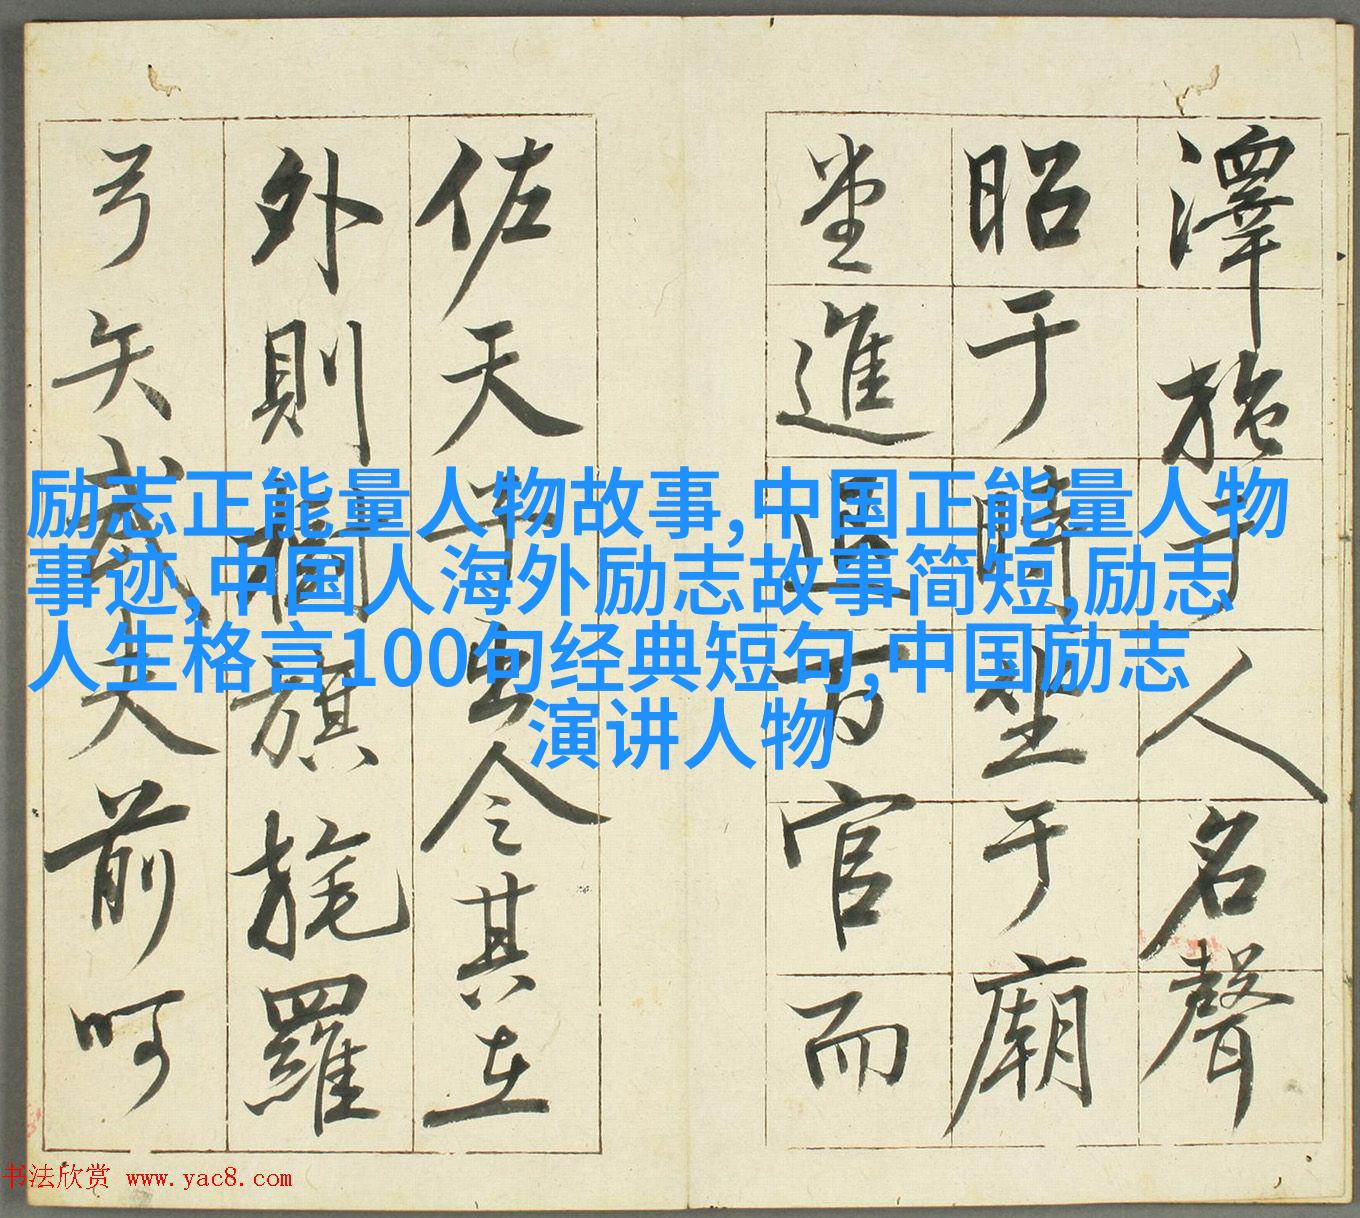 澤施于人名聲
昭于時坐于廟
堂進退百官而
佐天子出令其在
外則樹旗旄羅
弓矢武夫前呵
励志正能量人物故事,中国正能量人物
事迹,中国人海外励志故事简短,励志
人生格言100句经典短句,中国励志
演讲人物
书法欣赏 www.yac8.com